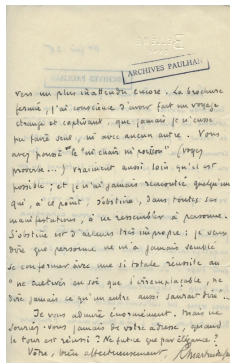 ARCHIVES PAULHAN
vers un plus inattendu encore. La brochure
fermée, j'ai conscience d'avoir fait un voyage
étrange et captivant, que jamais je n'eusse
pu faire seul, ni avec aucun autre. Vous
avez poussé le "ni chair ni poisson" (voyez
proverbe...) vraiment aussi loin qu'il est
possible; et je n'ai jamais rencontré quelqu'un
qui, à ce point, s'obstine, dans toutes ses
manifestations, à ne ressembler à personne.
S'obstine est d'ailleurs très impropre; je veux
dire que personne ne m'a jamais semblé
se conformer avec une si totale réussite au
"ne s'activer en soi que l'irremplaçable, ne
dire jamais ce qu'un autre aussi saurait dire...
Je vous admire énormément. Mais ne
souriez-vous jamais de votre adresse, quand
le tour est réussi? Ne fut-ce que par élégance?
Votre, bien affectueusement,